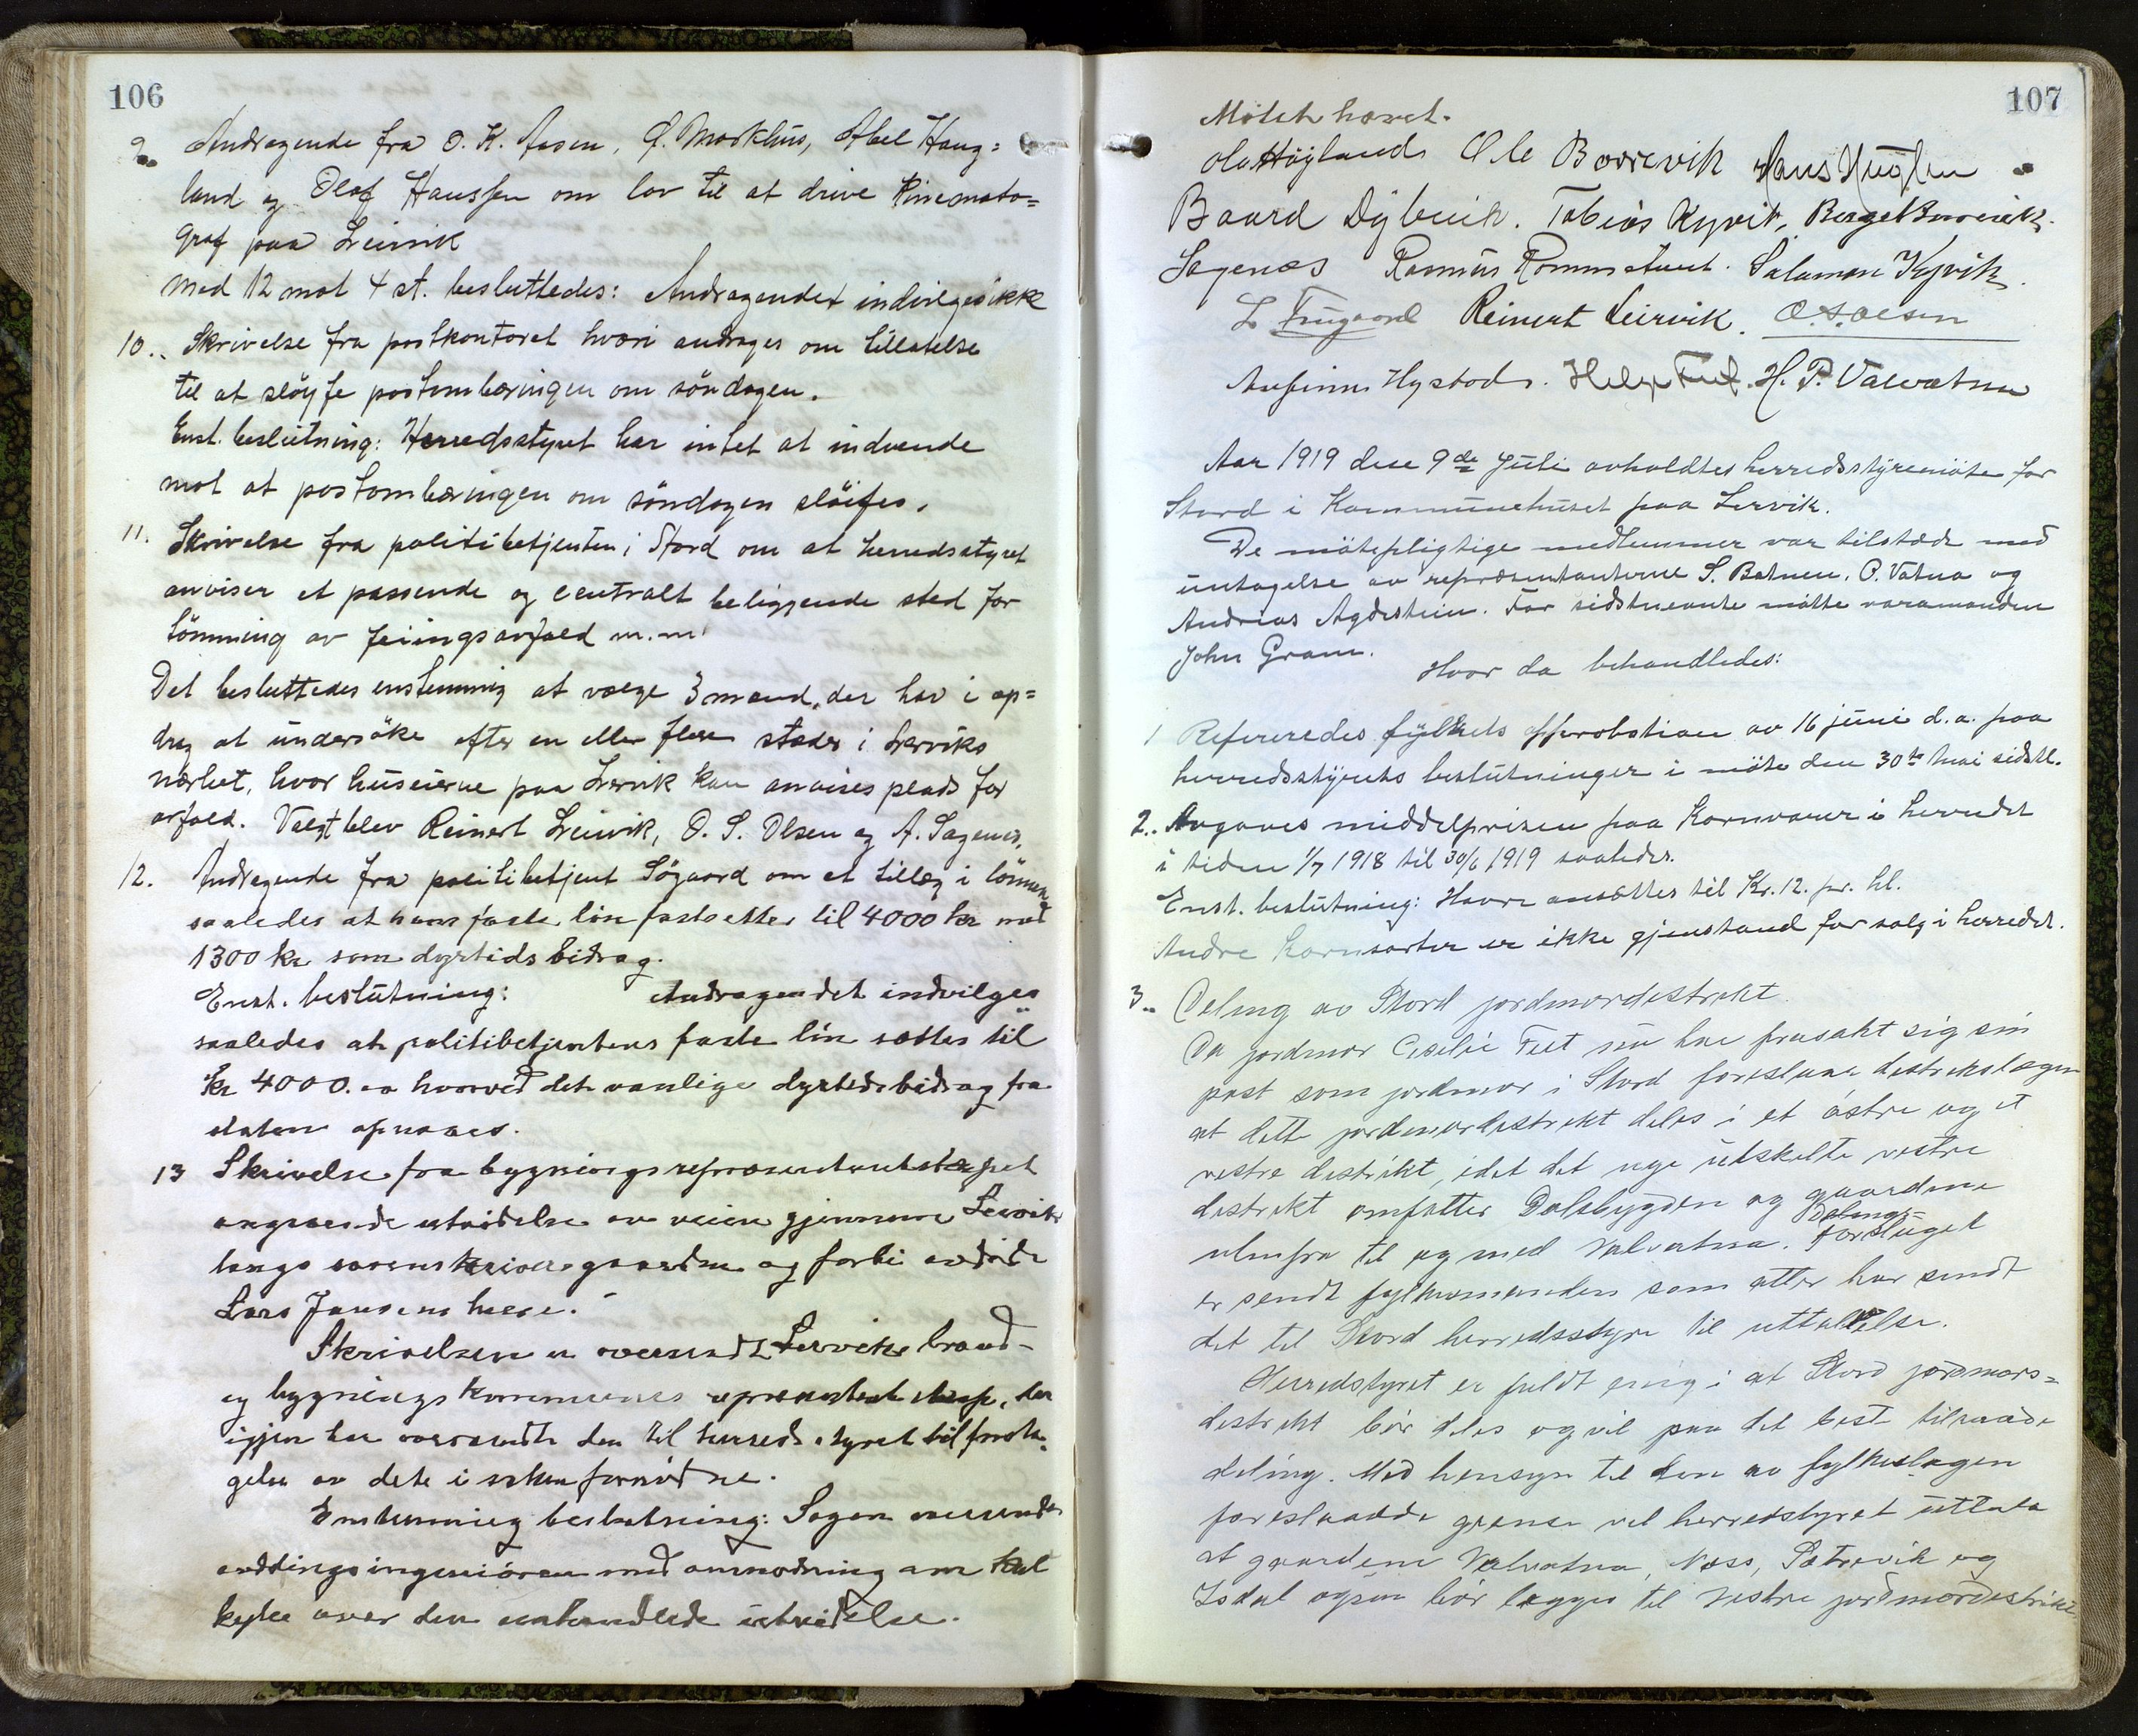 106
9. Andragende fra O. K. Aasen, Markhus, Abel Haug=
land og Olaf Hanssen om lov til at drive kinemato=
graf paa Leirvik
Med 12 mot 4 st. besluttedes: Andragendet indvilges ikke
10. Skrivelse fra postkontoret hvori andrages om tillatelse
til at sløyfe postombæringen om søndagen.
Enst. beslutning: Herredsstyret har intet at indvende
mot at postombæringen om søndagen sløifes.
11. Skrivelse fra politibetjenten i Stord om at herredsstyret
anviser et passende og centralt beliggende sted for
tømming av feiingsavfald m.m.
Det besluttedes enstemmig at vælge 3 mænd, der har i op=
drag at undersøke efter en eller flere steder i Lerviks
nærhet, hvor huseierne paa Lervik kan anvises plads for
avfald. Valgt blev Reinert Leirvik, O. S. Olsen og A. Sagenes.
12. Andragende fra politibetjent Søgaard om et tillæg i lønnen
saaledes at hans faste løn fastsættes til 4000 kr med
1300 kr som dyrtidsbidrag.
Enst. beslutning: Andragendet indvilges
saaledes at politibetjentens faste løn sættes til
kr 4000. hvorved det vanlige dyrtidsbidrag fra
staten opnaaes.
13 Skrivelse fra bygningsrepræsentantskapet
angaaende utvidelse av veien gjennem Leirvik
langs sorenskrivergaarden og forbi avdøde
Lars Jansens have.
Skrivelsen er oversendt Lerviks brand-
og bygningskommunes repræsentantskap, der
igjen har oversendt den til herredsstyret til foreta=
gelse av dete i saken fornødne.
Enstemmig beslutning: Sagen oversendes
avdelingsingeniøren med anmodning om
over den omhandlede utvidelse.
107
Møtet hævet.
Ola Høyland Ole Borrevik Hans
Baard Dybvik. Tobias Kyvik, Berget Borrevik
Sagenes Rasmus Rommetveit. Salamon Kyvik.
L Reinert Leirvik. O. S. Olsen
Anfinn Hystad. Helge H. P. Valvatna
Aar 1919 den 9de Juli avholdtes herredsstyremøte for
Stord i Kommunehuset paa Lervik.
De møtepligtige medlemmer var tilstede med
untagelse av repræsentanterne S. Batnen, O. Vatna og
Andreas Agdestein. For sidstnevnte møtte varamanden
John Gram.
Hvor da behandledes:
1 Refereredes fylkets approbation av 16 juni d.a. paa
herredsstyrets beslutninger i møte den 30te mai sidstl.
2. Avgaves middelprisen paa Kornvarer i herredet
i tiden 1/7 1918 til 30/6 1919 saaledes.
Enst. beslutning: Havre ansættes til Kr. 12. pr. hl.
Andre kornsorter er ikke gjenstand for salg i herredet.
3. Deling av Stord jordmordistrikt.
Da jordmor Cecilie Tveit nu har frasakt sig sin
post som jordmor i Stord foreslaar distrikslægen
at dette jordmordistrikt deles i et østre og et
vestre distrikt, idet det nye utskelte vestre
distrikt omfatter Dalsbygden og gaardene
utenfra til og med Valvatna. Delings=
forslaget
er sendt fylkesmanden som atter har sendt
det til Stord herredsstyre til uttalelse.
Herredstyret er fuldt enig i at Stord jordmors=
distrikt bør deles og vil paa det best tilraade
deling. Med hensyn til den av fylkeslægen
foreslaadde grense vil herredstyret uttala
at gaardene Valvatna, Næss, Sætrevik og
Isdal ogsaa bør lægges til Vestre jordmordistrikt